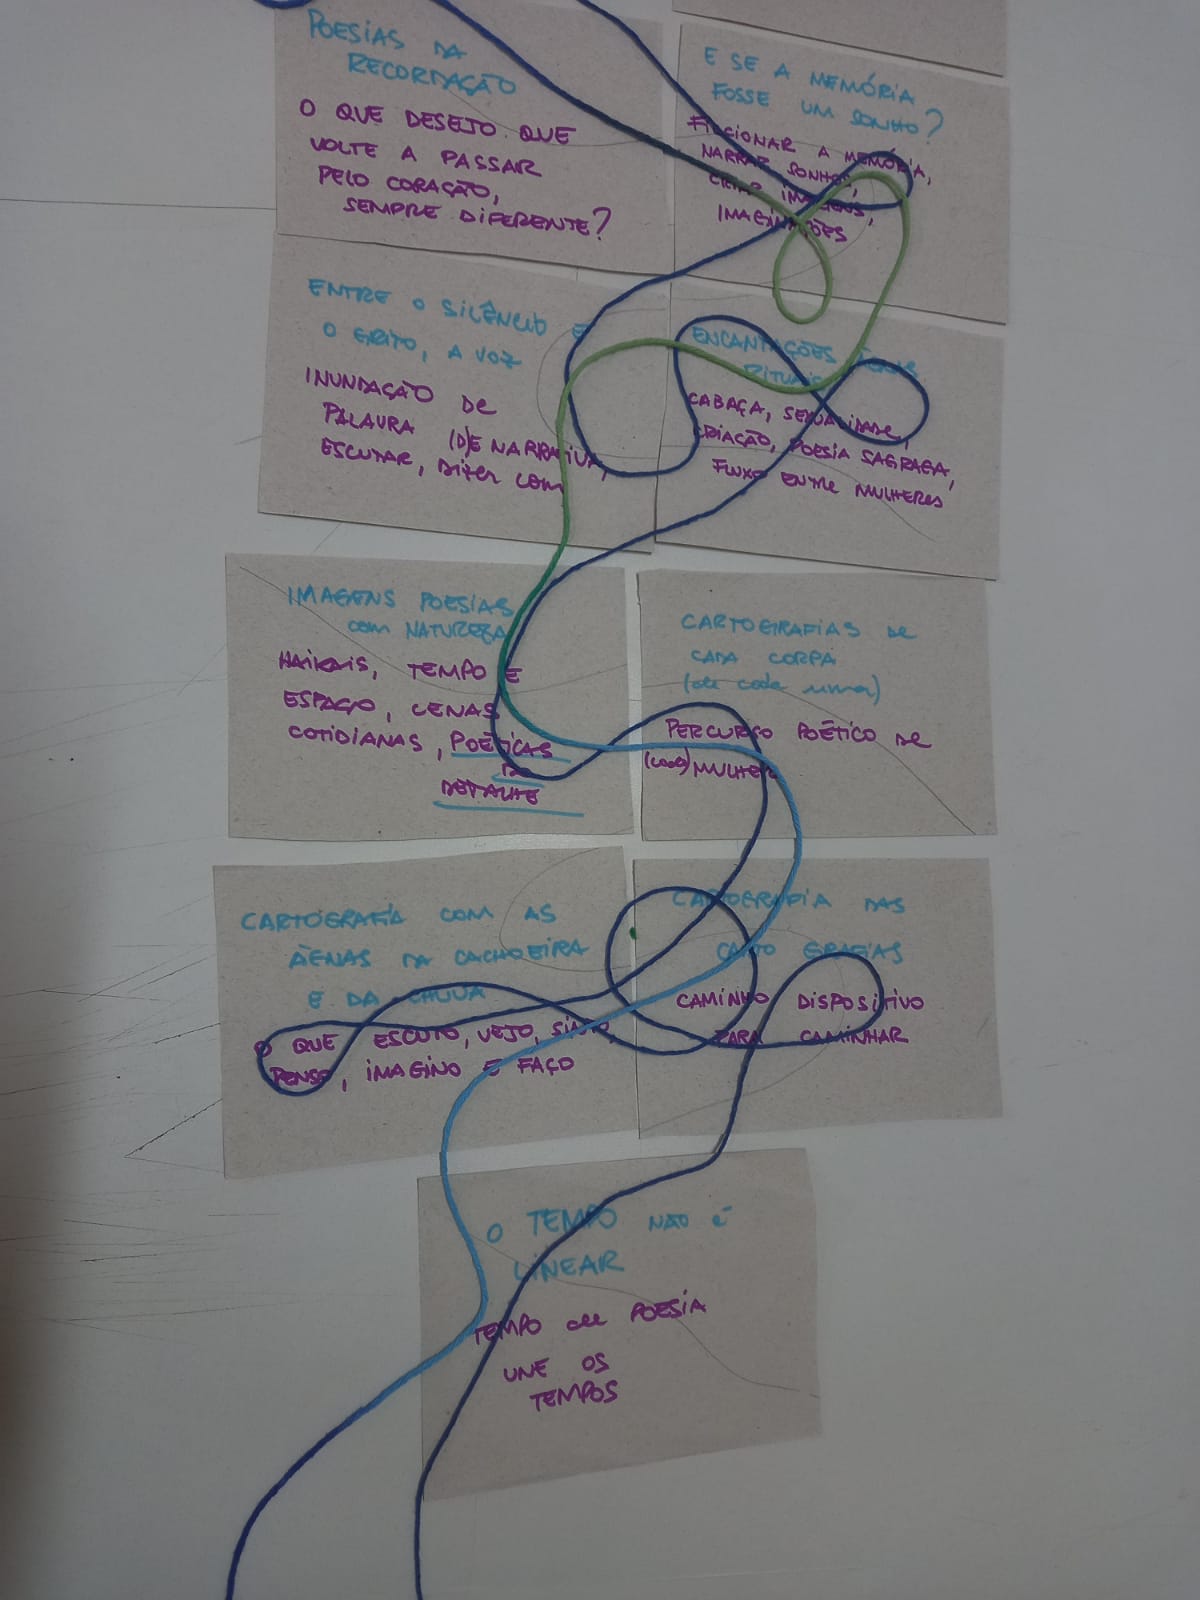 POESIAS DA
RECORDAÇÃO
O QUE DESEJO QUE
VOLTE A PASSAR
PELO CORAÇÃO,
SEMPRE DIFERENTE?
E SE A MEMÓRIA
FOSSE UM SONHO?
FICCIONAR A MEMÓRIA,
NARRAR SONHOS,
CRIAR IMAGENS,
IMAGINAÇÕES
ENTRE O SILÊNCIO E
O GRITO, A VOZ
INUNDAÇÃO DE
PALAVRA (D)E NARRATIVA,
ESCUTAR, DIZER COM
ENCANTAÇÕES
RITUAIS
CABAÇA, SEXUALIDADE,
CRIAÇÃO, POESIA SAGRADA,
FLUXO ENTRE MULHERES
IMAGENS POESIAS
COM NATUREZA
HAIKAIS, TEMPO E
ESPAÇO, CENAS
COTIDIANAS, POÉTICAS
DO
DETALHE
CARTOGRAFIAS DE
CADA CORPA
(de cada uma)
PERCURSO POÉTICO DE
(cada) MULHER
CARTOGRAFIA COM AS
ÁGUAS DA CACHOEIRA
E DA CHUVA
O QUE ESCUTO, VEJO, SINTO,
PENSO, IMAGINO E FAÇO
CARTOGRAFIA DAS
CARTO GRAFIAS
CAMINHO DISPOSITIVO
PARA CAMINHAR
O TEMPO NÃO É
LINEAR
TEMPO de POESIA
UNE OS
TEMPOS